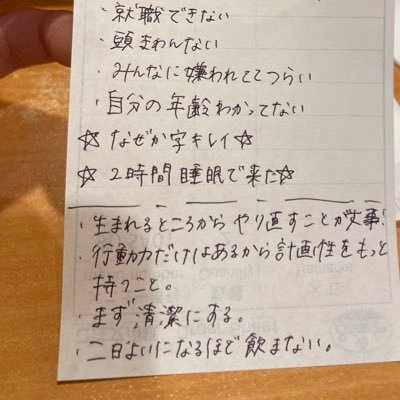 ・就職できない
・頭まわんない
・みんなに嫌われててつらい
・自分の年齢わかってない
☆なぜか字キレイ☆
☆2時間睡眠で来た☆
・生まれるところからやり直すことが大事!
・行動力だけはあるから計画性をもっと
持つこと。
・まず清潔にする。
・二日よいになるほど飲まない。